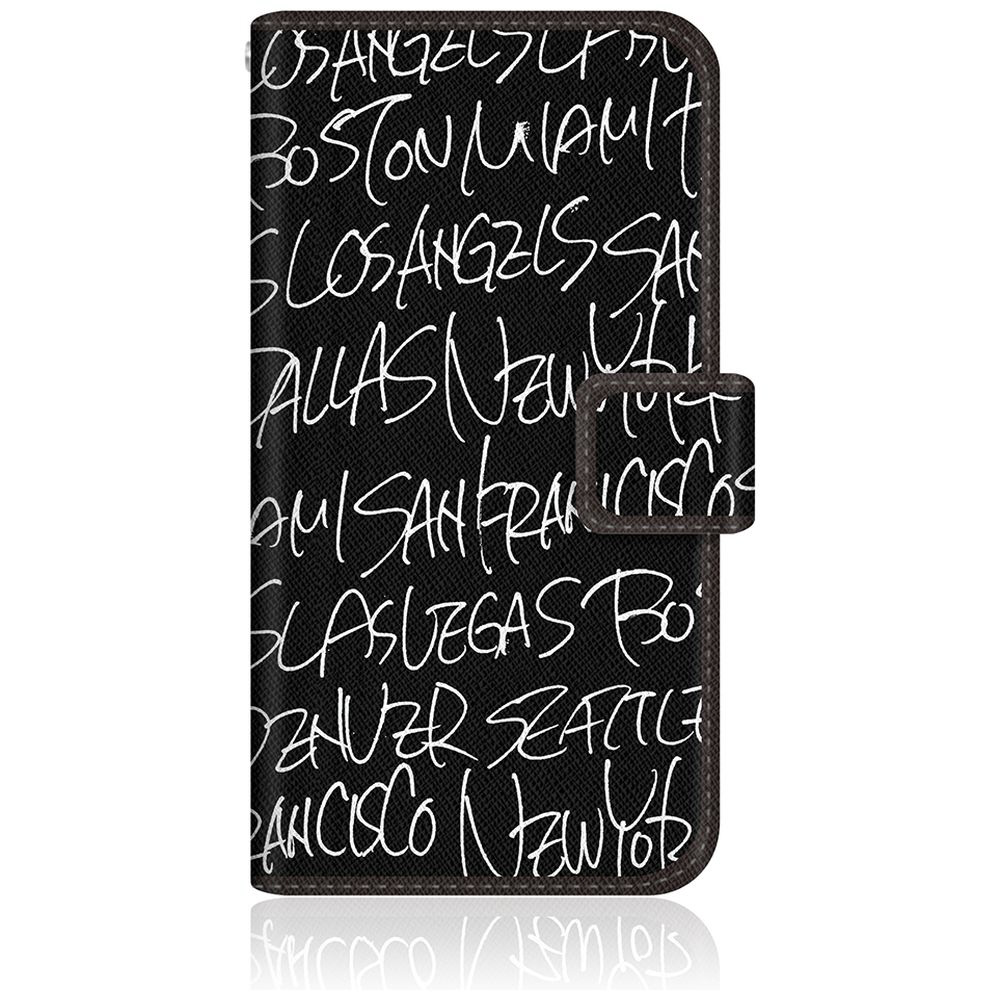 LOSANGELS
BOSTON MIAMI
LOSANGELS SAN
DALLAS NEWYORK
AMI SAN FRANCISCO
LASVEGAS BO
DENVER SEATTLE
RANCISCO NEWYOR